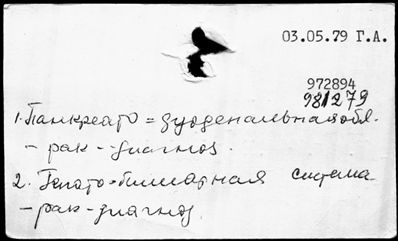 03.05.79 Г.А.
972894
981279
1. Панкреато = дуоденальная обл.
- рак - диагноз.
2. Гепато-билиарная система
- рак - диагноз.